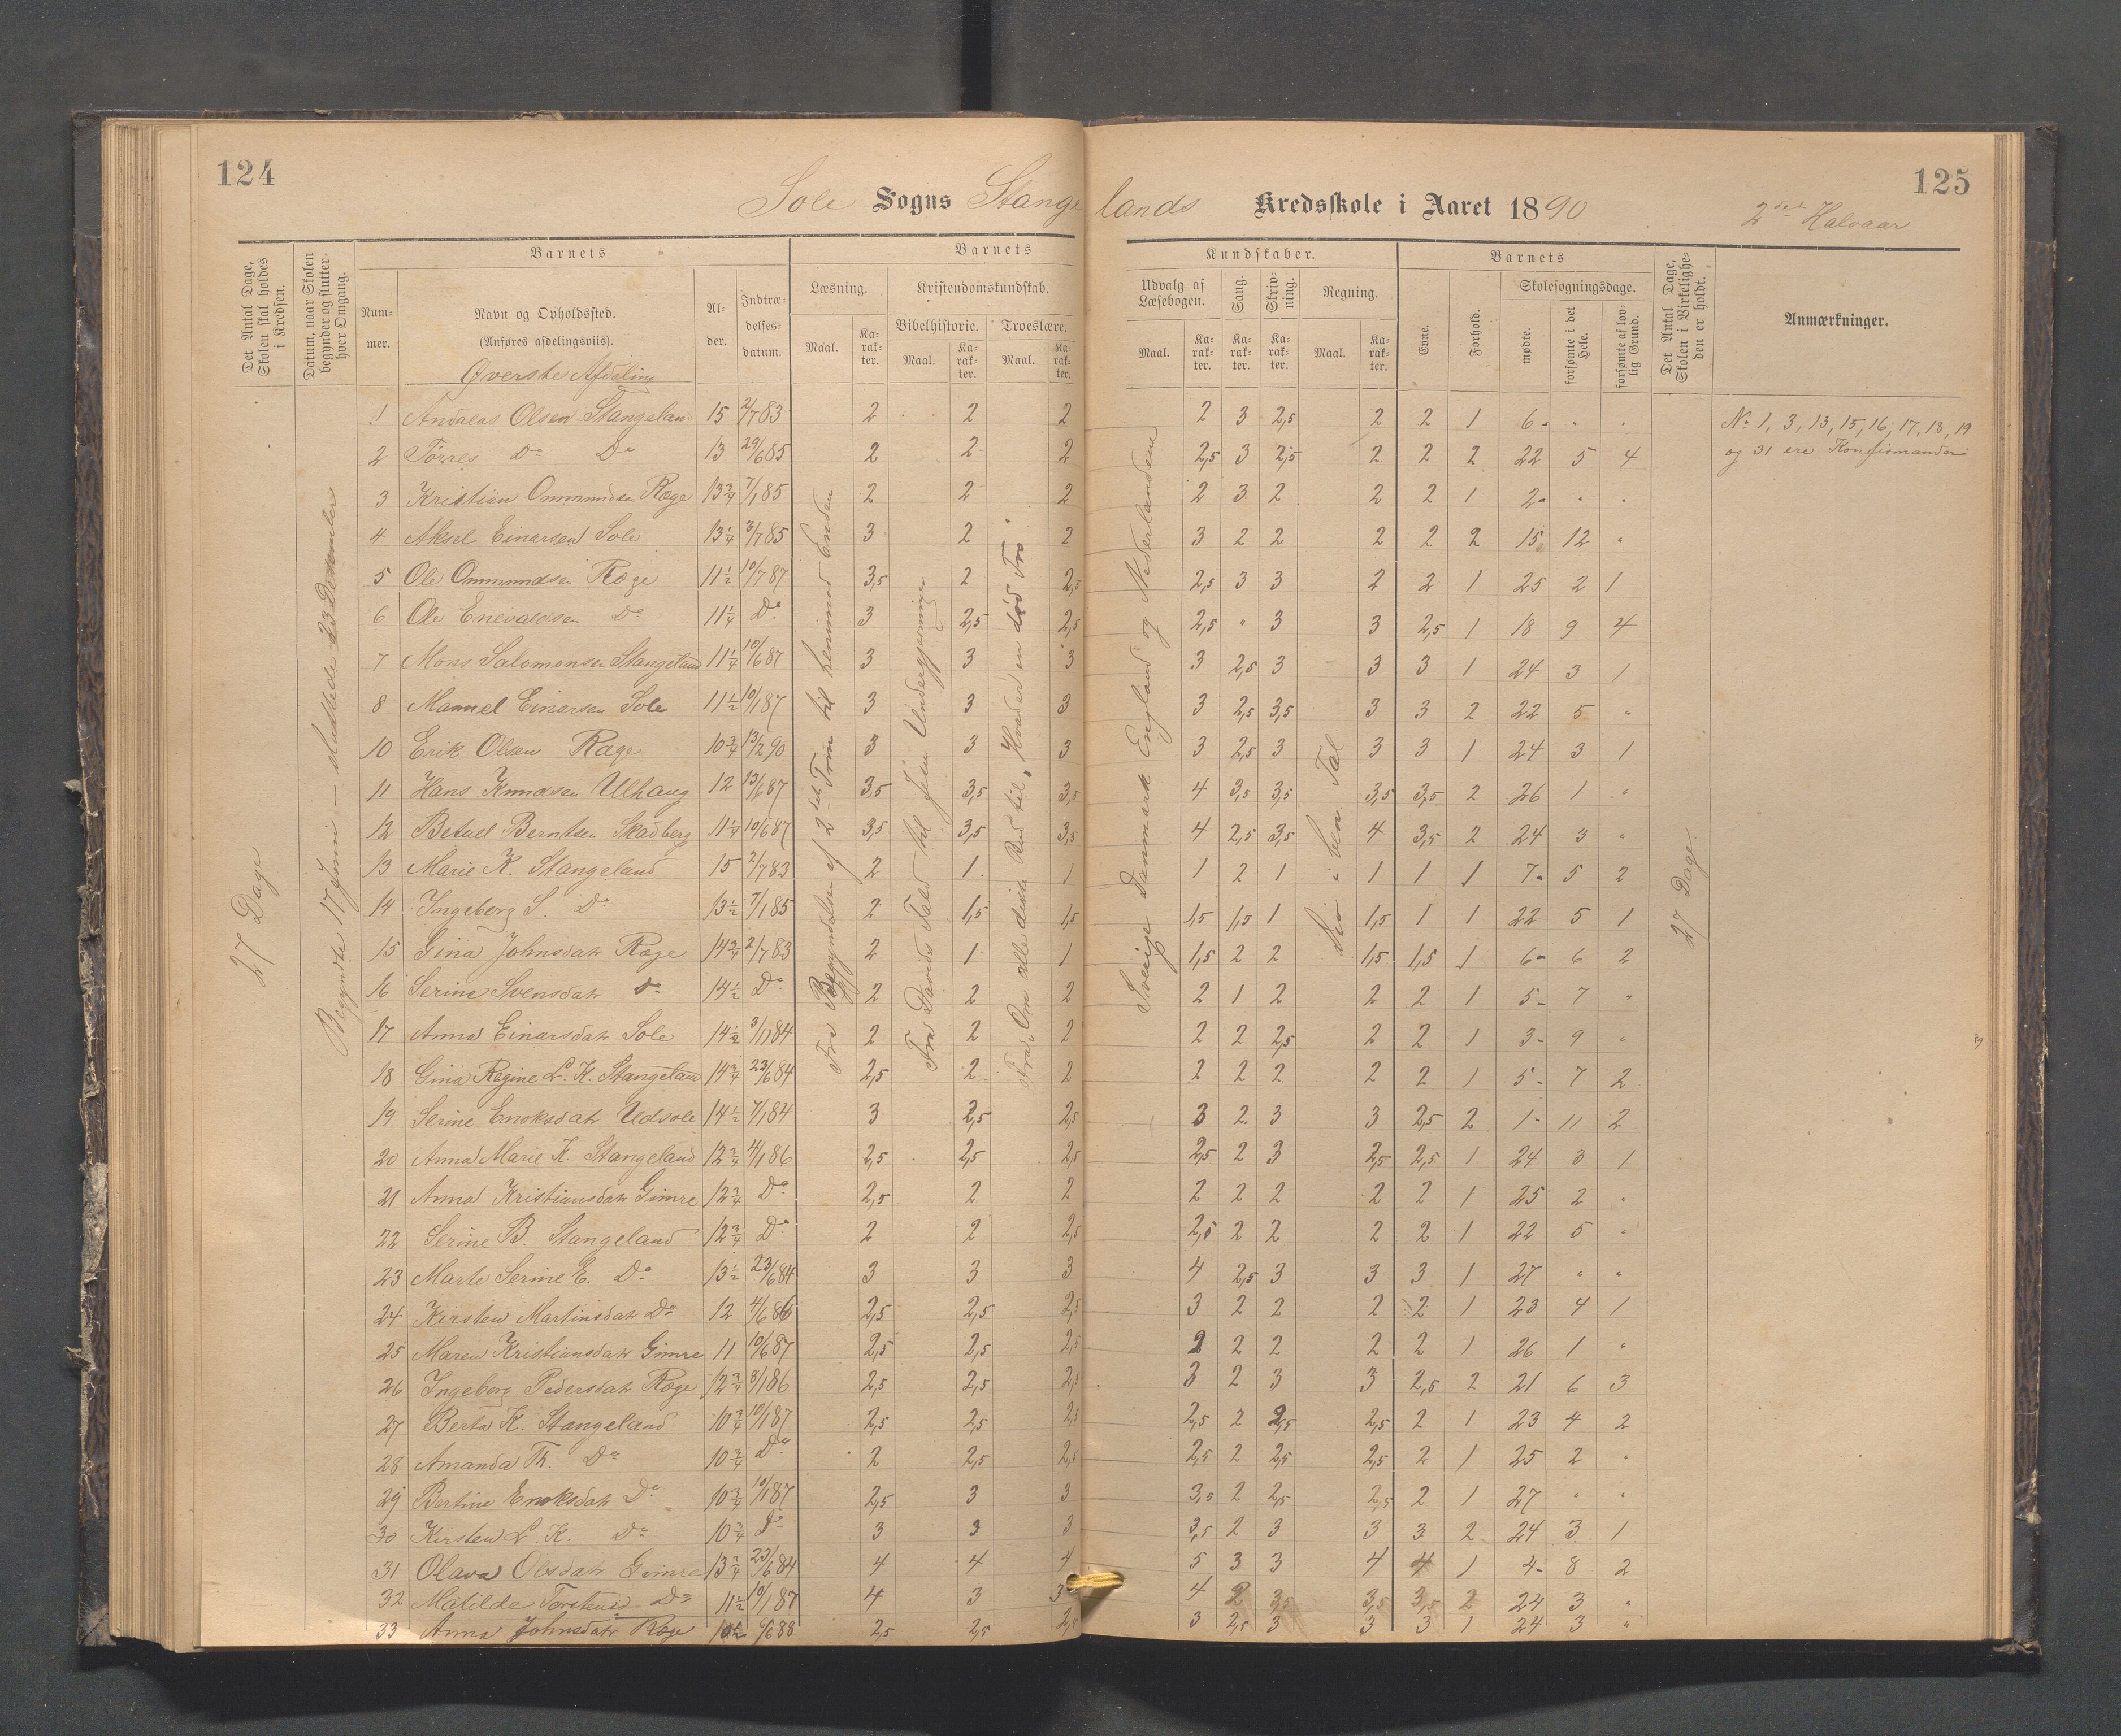 124
125
Sole Sogns Stangelands Kredsskole i Aaret 1890
2det Halvaar
Det Antal Dage, Skolen skal holdes i Kredsen.
Datum, naar Skolen begynder og slutter hver Omgang.
Barnets
Nummer.
Navn og Opholdssted.
(Anføres afdelingsviis).
Alder.
Indtrædelsesdatum.
Barnets Kundskaber.
Læsning.
Maal.
Karakter.
Kristendomskundskab.
Bibelhistorie.
Maal.
Karakter.
Troeslære.
Maal.
Karakter.
Udvalg af Læsebogen.
Maal.
Karakter.
Sang.
Karakter.
Skrivning.
Karakter.
Regning.
Maal.
Karakter.
Barnets
Evne.
Forhold.
Skolesøgningsdage.
mødte.
forsømte i det Hele.
forsømte af lovlig Grund.
Det Antal Dage, Skolen i Virkeligheden er holdt.
Anmærkninger.
Øverste Afdeling
27 Dage
Begyndte 17 Juni — sluttede 23 Desember
Fra Begyndelsen af 2det Trin til henimod Enden
Fra Davids Fald til Jesu Undergjerninger
Fra „Om alle disse Bud til „Hvad er en død Tro"
Sverige Danmark England og Nederlandene
Div i ben. Tal
27 Dage
1 Andreas Olsen Stangeland 15 2/7 83 2 2 2 2 3 2,5 2 2 1 6 - " "
2 Tørres Do Do 13 29/6 85 2 2 2 2,5 3 2,5 2 2 2 22 5 4
3 Kristian Ommundsen Ræge 13 3/4 7/1 85 2 2 2 2 3 2 2 2 1 2 - " "
4 Aksel Einarsen Sole 13 1/4 3/7 85 3 2 2 3 2 2 2 2 2 15 12 "
5 Ole Ommundsen Ræge 11 1/2 10/7 87 3,5 2 2,5 2,5 3 3 2 2 1 25 2 1
6 Ole Enevaldsen Do 11 1/4 Do 3 2,5 2,5 2,5 " 3 3 2,5 1 18 9 4
7 Mons Salomonsen Stangeland 11 1/4 10/6 87 3 3 3 3 2,5 3 3 3 1 24 3 1
8 Manuel Einarsen Sole 11 1/2 10/1 87 3 3 3 3 2,5 3,5 3 3 2 22 5 "
10 Erik Olsen Ræge 10 3/4 13/2 90 3 3 3 3 2,5 3 3 3 1 24 3 1
11 Hans Knudsen Ulhaug 12 13/6 87 3,5 3,5 3,5 4 3,5 3,5 3,5 3,5 2 26 1 "
12 Betuel Berntsen Skadberg 11 1/4 10/6 87 3,5 3,5 3,5 4 2,5 3,5 4 3,5 2 24 3 "
13 Marie K. Stangeland 15 2/7 83 2 1 1 1 2 1 1 1 1 7 - 5 2
14 Ingeborg S. Do 13 1/2 7/1 85 2 1,5 1,5 1,5 1,5 1 1,5 1 1 22 5 1
15 Gina Johnsdatr Ræge 14 3/4 2/7 83 2 1 1 1,5 2 2 1,5 1,5 1 6 - 6 2
16 Serine Svensdatr Do 14 1/2 Do 2 2 2 2 1 2 2 2 1 5 - 7 "
17 Anna Einarsdatr Sole 14 1/2 3/1 84 2 2 2 2 2 2,5 2 2 1 3 - 9 "
18 Gina Regine L. K. Stangeland 14 3/4 23/6 84 2,5 2 2 2 2 2 2 2 1 5 - 7 2
19 Serine Enoksdatr Udsole 14 1/2 7/1 84 3 2,5 2,5 3 2 3 3 2,5 2 1 - 11 2
20 Anna Marie K. Stangeland 12 3/4 4/1 86 2,5 2,5 2,5 2,5 2 3 2,5 2,5 1 24 3 1
21 Anna Kristiansdatr Gimre 12 3/4 Do 2,5 2 2 2 2 2 2 2 1 25 2 "
22 Serine B. Stangeland 12 3/4 Do 2 2 2,5 2,5 2 2 2 2 1 22 5 "
23 Marte Serine E. Do 13 1/2 23/6 84 3 3 3 4 2,5 3 3 3 1 27 " "
24 Kirsten Martinsdatr Do 12 4/6 86 2,5 2,5 2,5 3 2 2 2 2 1 23 4 1
25 Maren Kristiansdatr Gimre 11 10/6 87 2,5 2,5 2,5 2 2 2 2 2 1 26 1 "
26 Ingeborg Pedersdatr Ræge 12 3/4 8/1 86 2,5 2,5 2,5 3 2 3 3 2,5 2 21 6 3
27 Berta K. Stangeland 10 3/4 10/1 87 2,5 2,5 2,5 2,5 2 2,5 2,5 2 1 23 4 2
28 Amanda Th. Do 10 3/4 Do 2 2,5 2,5 2,5 2 2,5 2,5 2 1 25 2 "
29 Bertine Enoksdatr Do 10 3/4 10/1 87 2,5 3 3 3,5 2 2,5 2,5 2 1 27 " "
30 Kirsten L. K. Do 10 3/4 Do 3 3 3 3,5 2 3 3 3 2 24 3 1
31 Olava Olsdatr Gimre 13 3/4 23/6 84 4 4 4 5 3 3 4 4 1 4 - 8 2
32 Matilde Torstensd Do 11 1/2 10/1 87 4 3 3 4 2 3,5 3,5 3,5 2 24 3 "
33 Anna Johnsdatr Ræge 6/6 88 2,5 2,5 2,5 3 2,5 3 3 3 1 24 3 "
No 1, 3, 13, 15, 16, 17, 18, 19
og 31 ere Konfirmander